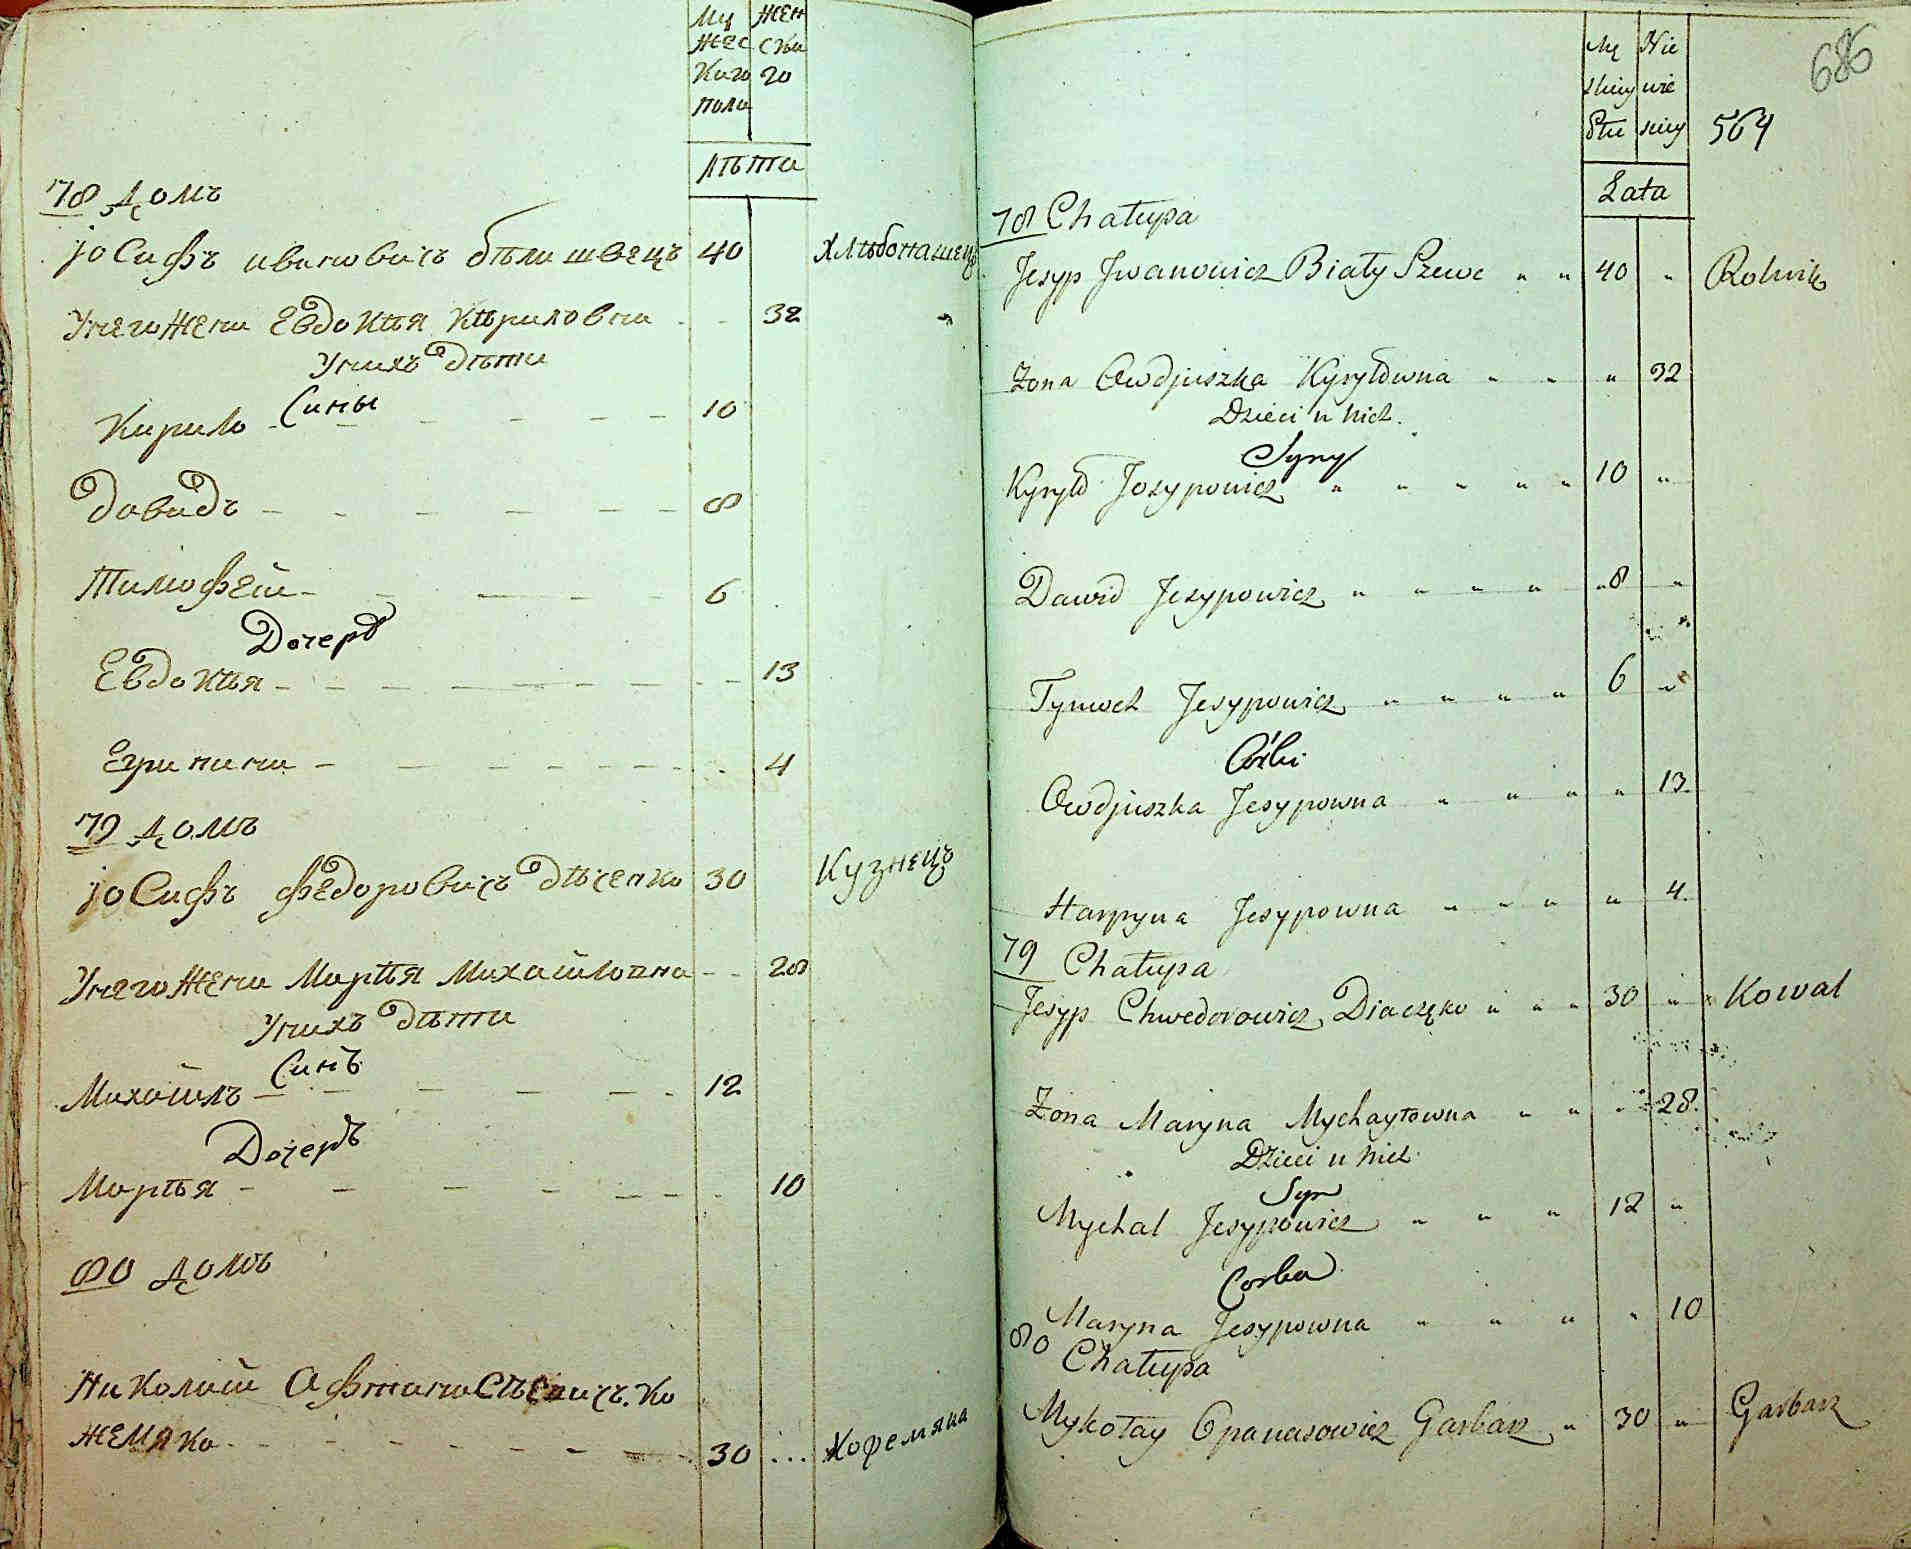 Му Жен
жес ски
каго го
пола
Лѣта
78 Домъ
Іосифъ ивановичъ бѣли швецъ 40 Хлѣбопашецъ
Унего жена Евдокѣя кѣриловна - - 32
Унихъ дѣти
Сины
Кирило - - - - - - 10
Давидъ - - - - - - 8
Тимофей - - - - - 6
Дочерѣ
Евдокѣя - - - - - - - - 13
Егрипина - - - - - - - - 4
79 Домъ
Іосифъ Федоровичъ дѣченко 30 Кузнецъ
Унего жена Марѣя Михайловна - - 28
Унихъ дѣти
Синъ
Михайлъ - - - - - - 12
Дочеръ
Марѣя - - - - - - - 10
80 Домъ
Николай Афтанасѣевичъ. Ко
жемяко - - - - - - - 30 ... Кожемяка
686
Mę Nie
skiey wie
Płci skiey 564
Lata
78 Chałupa
Jesyp Jwanowicz Biały Szewc " " 40 " Rolnik
Żona Owdjuszka Kyryłowna " " " 32
Dzieci u nich.
Syny
Kyryło Josypowicz " " " " " 10 "
Dawid Jesypowicz " " " " " 8 "
Tymoch Jesypowicz " " " " 6 "
Córki
Owdjuszka Jesypowna " " " " 13.
Harpyna Jesypowna " " " " 4.
79 Chałupa
Jesyp Chwedorowicz Diaczęko " " " 30 " " Kowal
Żona Maryna Mychayłowna " " " 28.
Dzieci u nich
Syn
Mychal Jesypowicz " " " 12 "
Corka
Maryna Jesypowna " " " " 10
80
Chałupa
Mykołay Opanasowicz Garbarz " 30 " Garbarz